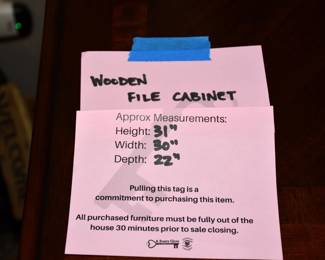 WOODEN
FILE CABINET
Approx Measurements:
Height: 31"
Width: 30"
Depth: 22"
Pulling this tag is a
commitment to purchasing this item.
All purchased furniture must be fully out of the
house 30 minutes prior to sale closing.